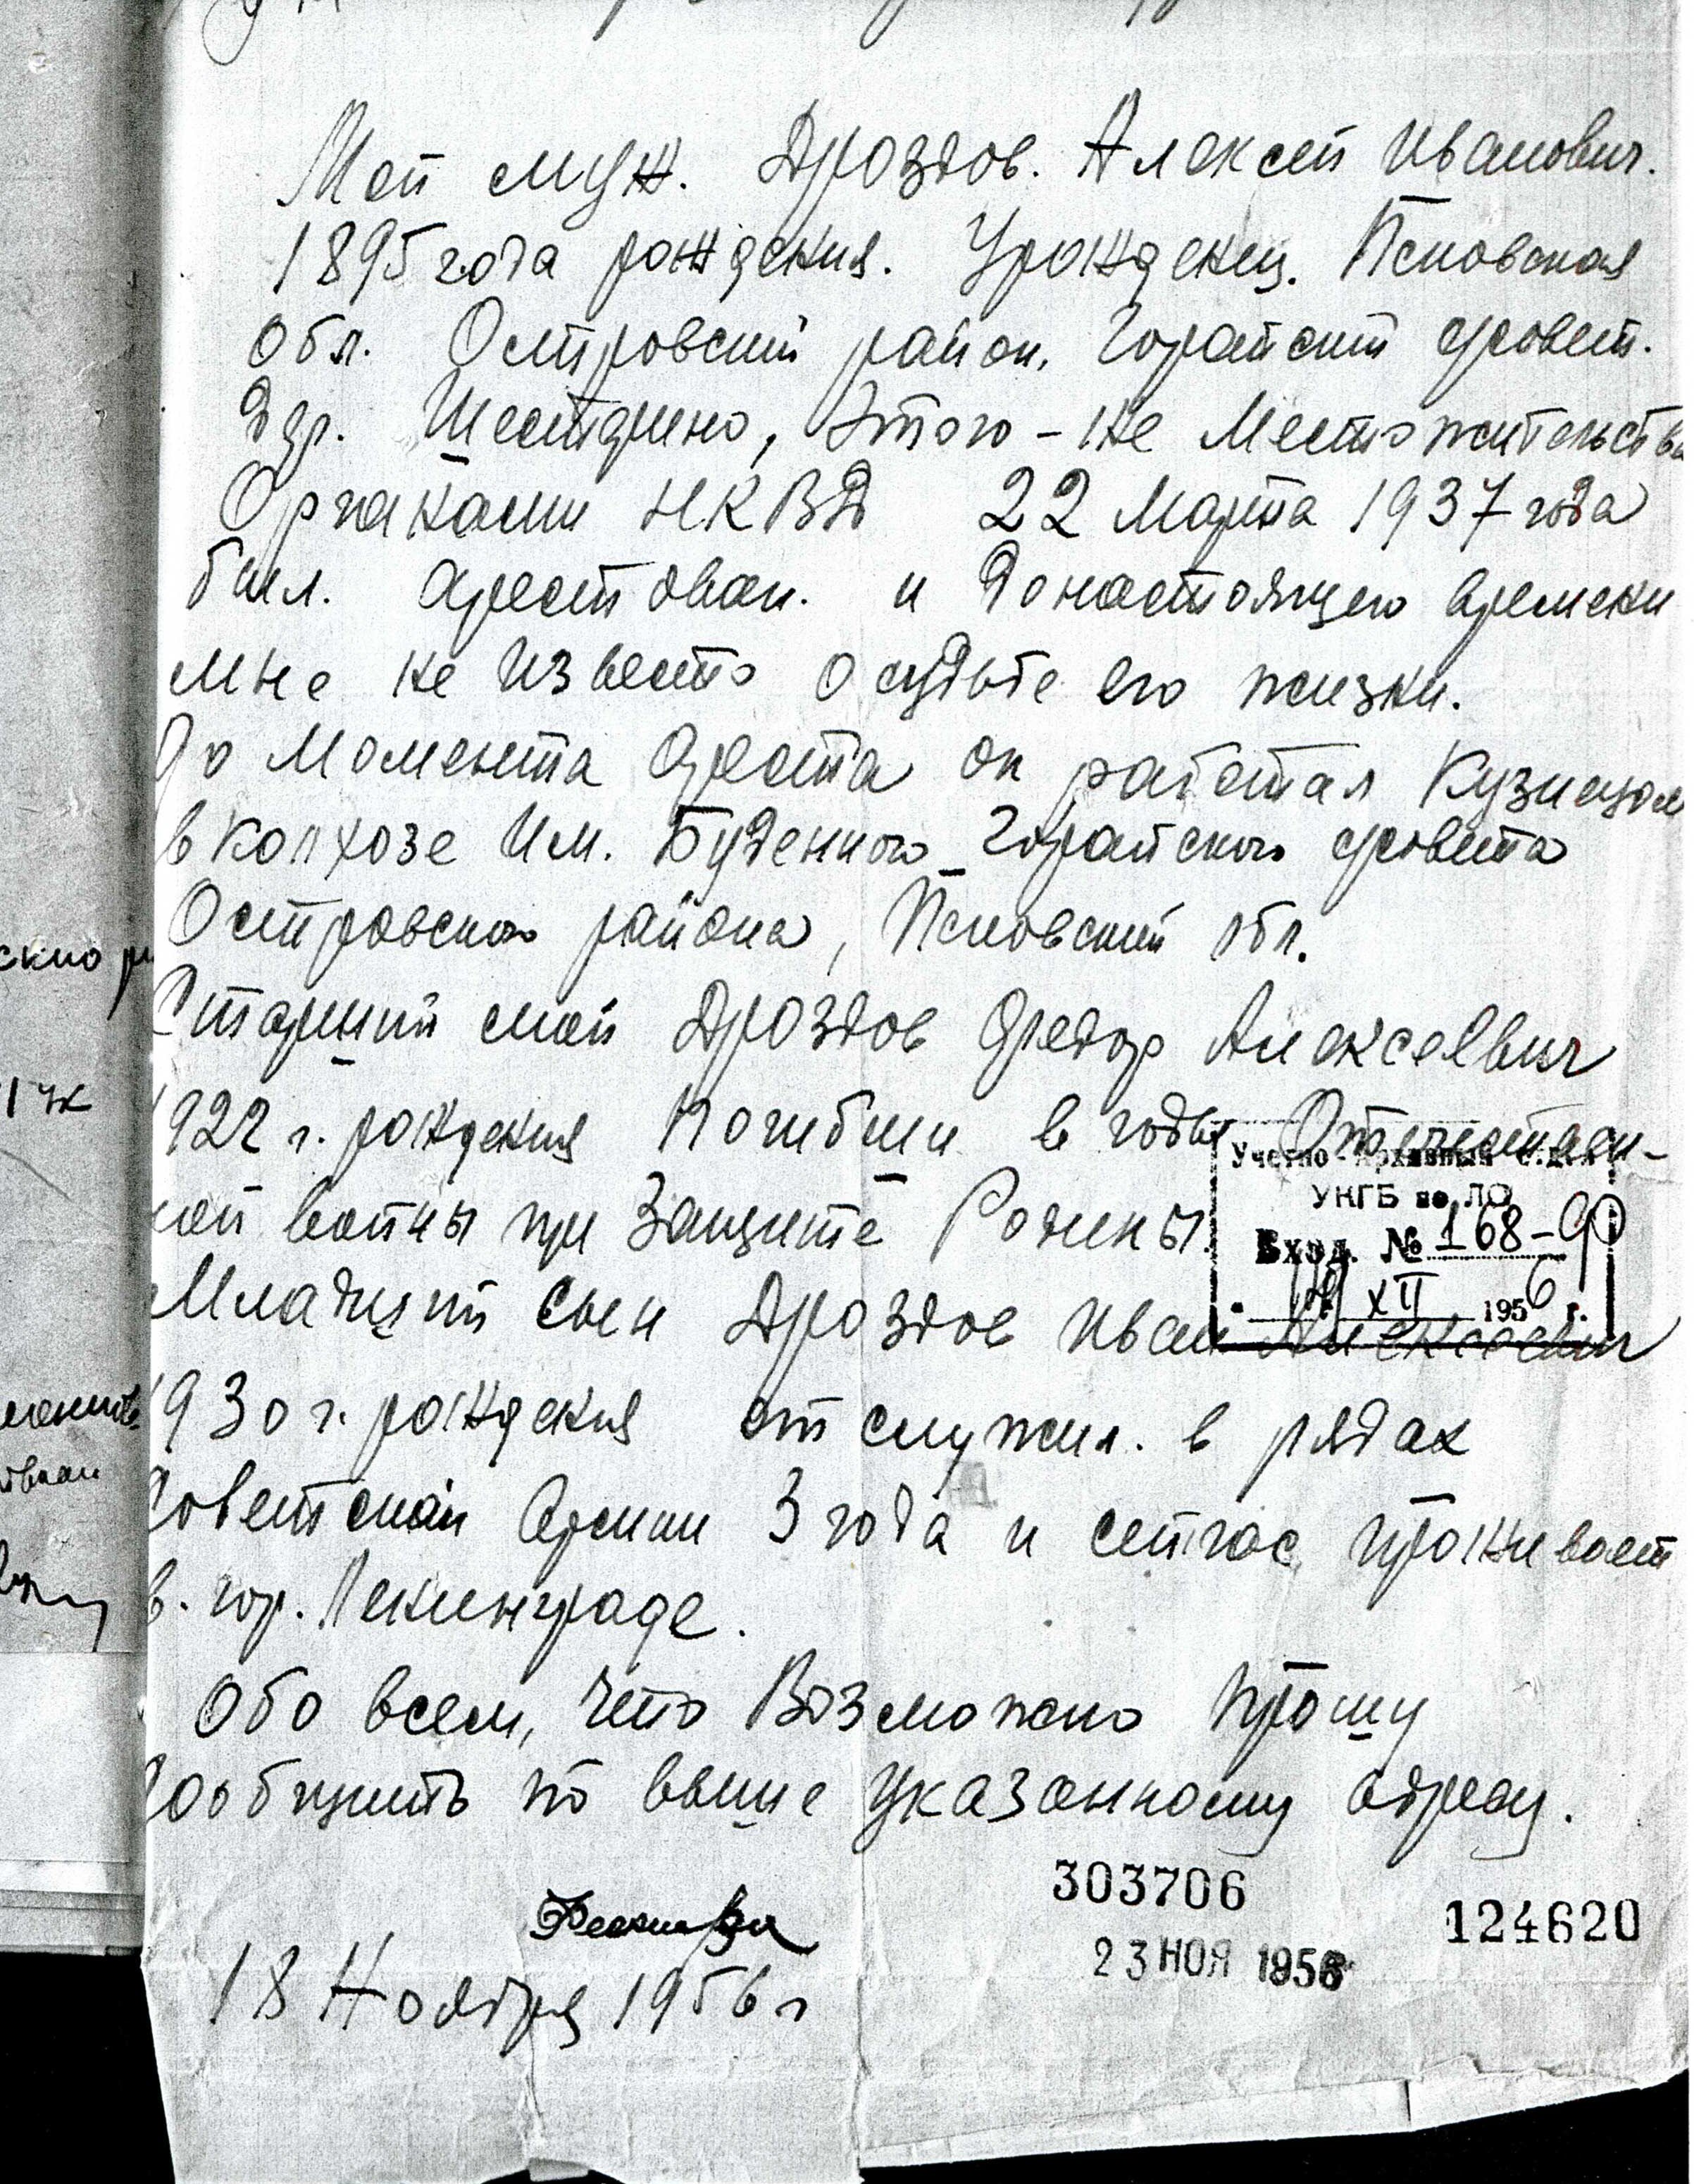 Мой муж. Дроздов. Алексей Иванович.
1895 года рождения. Урожденец. Псковская
обл. Островский район, Горайский с/совет.
дер. Шестаткино, этого-же местожительства
Органами НКВД 22 Марта 1937 года
был. арестован. и донастоящего времени
мне не известо о судьбе его жизни.
До момента ареста он работал Кузнецом
в колхозе Им. Буденного Горайского с/совета
Островского района, Псковский обл.
Старший мой Дроздов Федор Алексеевич
1922 г. рождения погибши в годы Отечествен-
ной войны при Защите Родины.
Учетно-Архивный отдел
УНГБ по ЛО
Вход. № 168-90
XII 1956 г.
Младший сын Дроздов Иван Алексеевич
1930 г. рождения отслужил. в рядах
Советской Армии 3 года и сейчас проживает
в. гор. Ленинграде.
Обо всем, что Возможно прошу
сообщить по выше указанному адресу.
303706
124620
23 НОЯ 1956
18 Ноября 1956 г